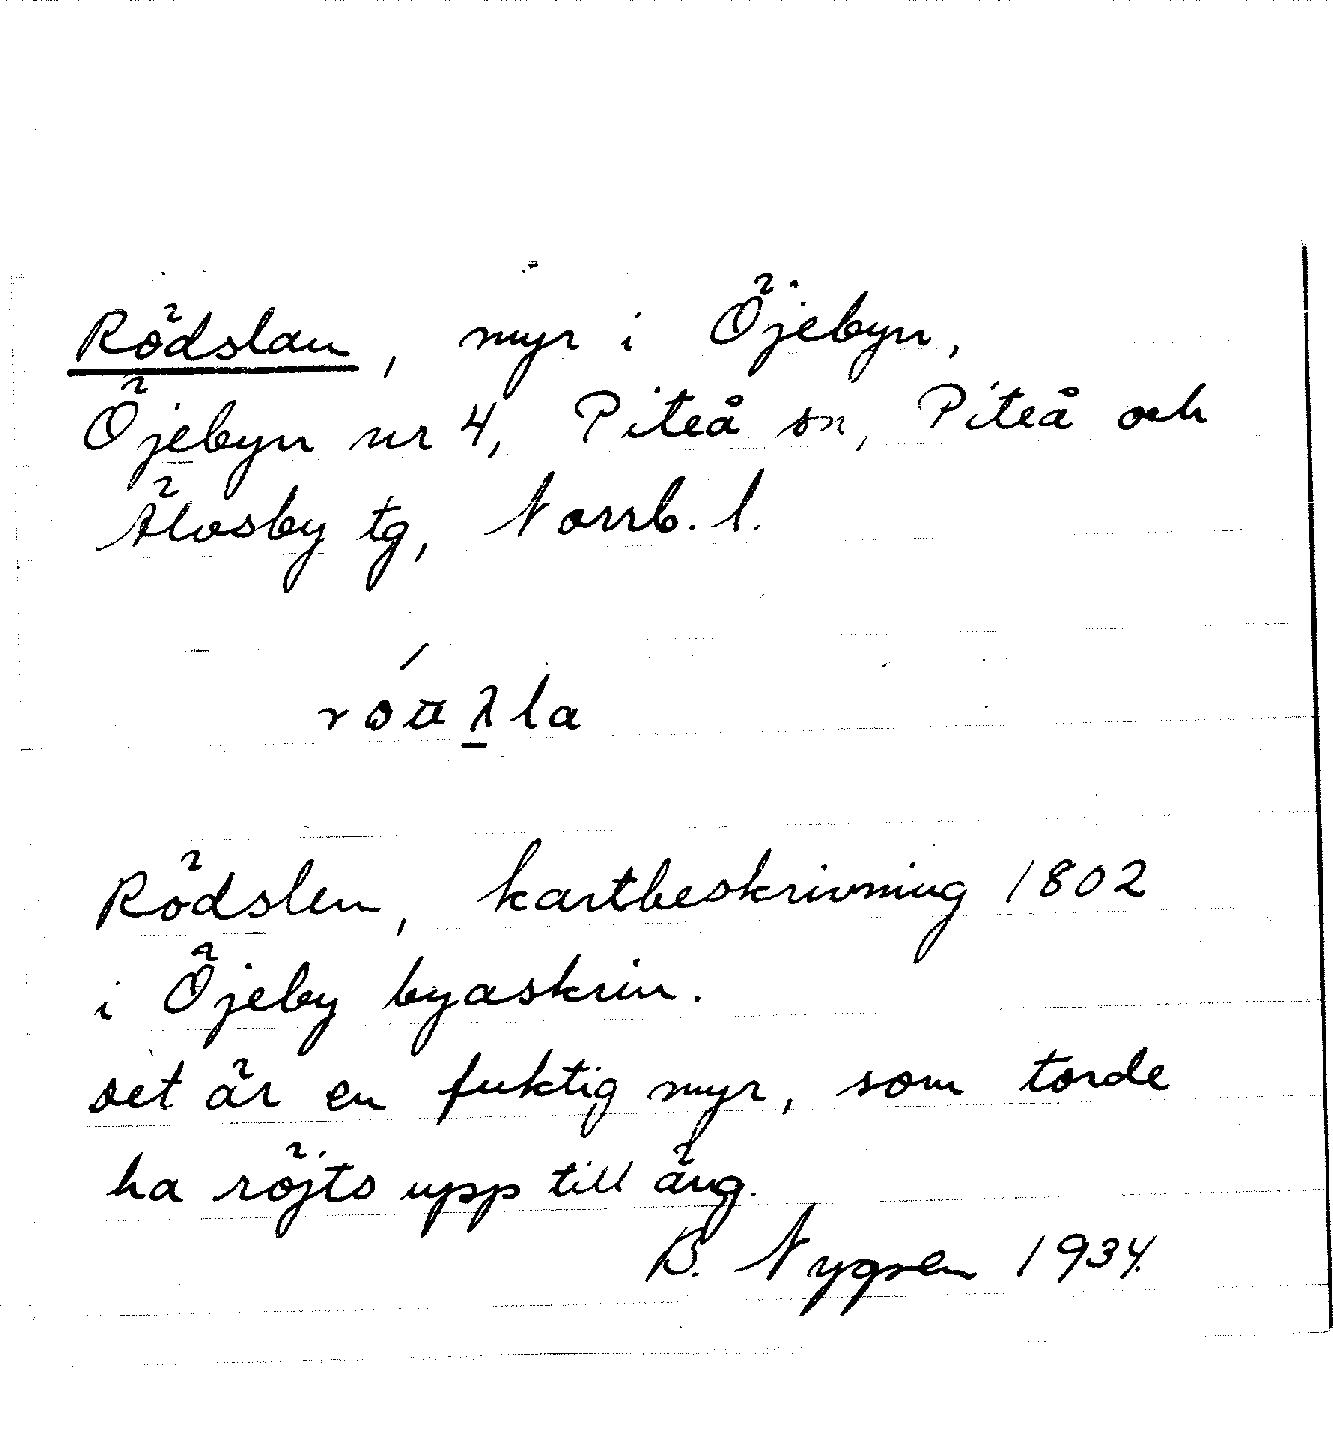 Rödslan, myr i Öjebyn,
Öjebyn nr 4, Piteå sn, Piteå och
Älvsby tg, Norrb. l.
Rödslen, kartbeskrivning 1802
i Öjeby byaskrin.
Det är en fuktig myr, som torde
ha röjts upp till äng.
B. Nygren 1934.